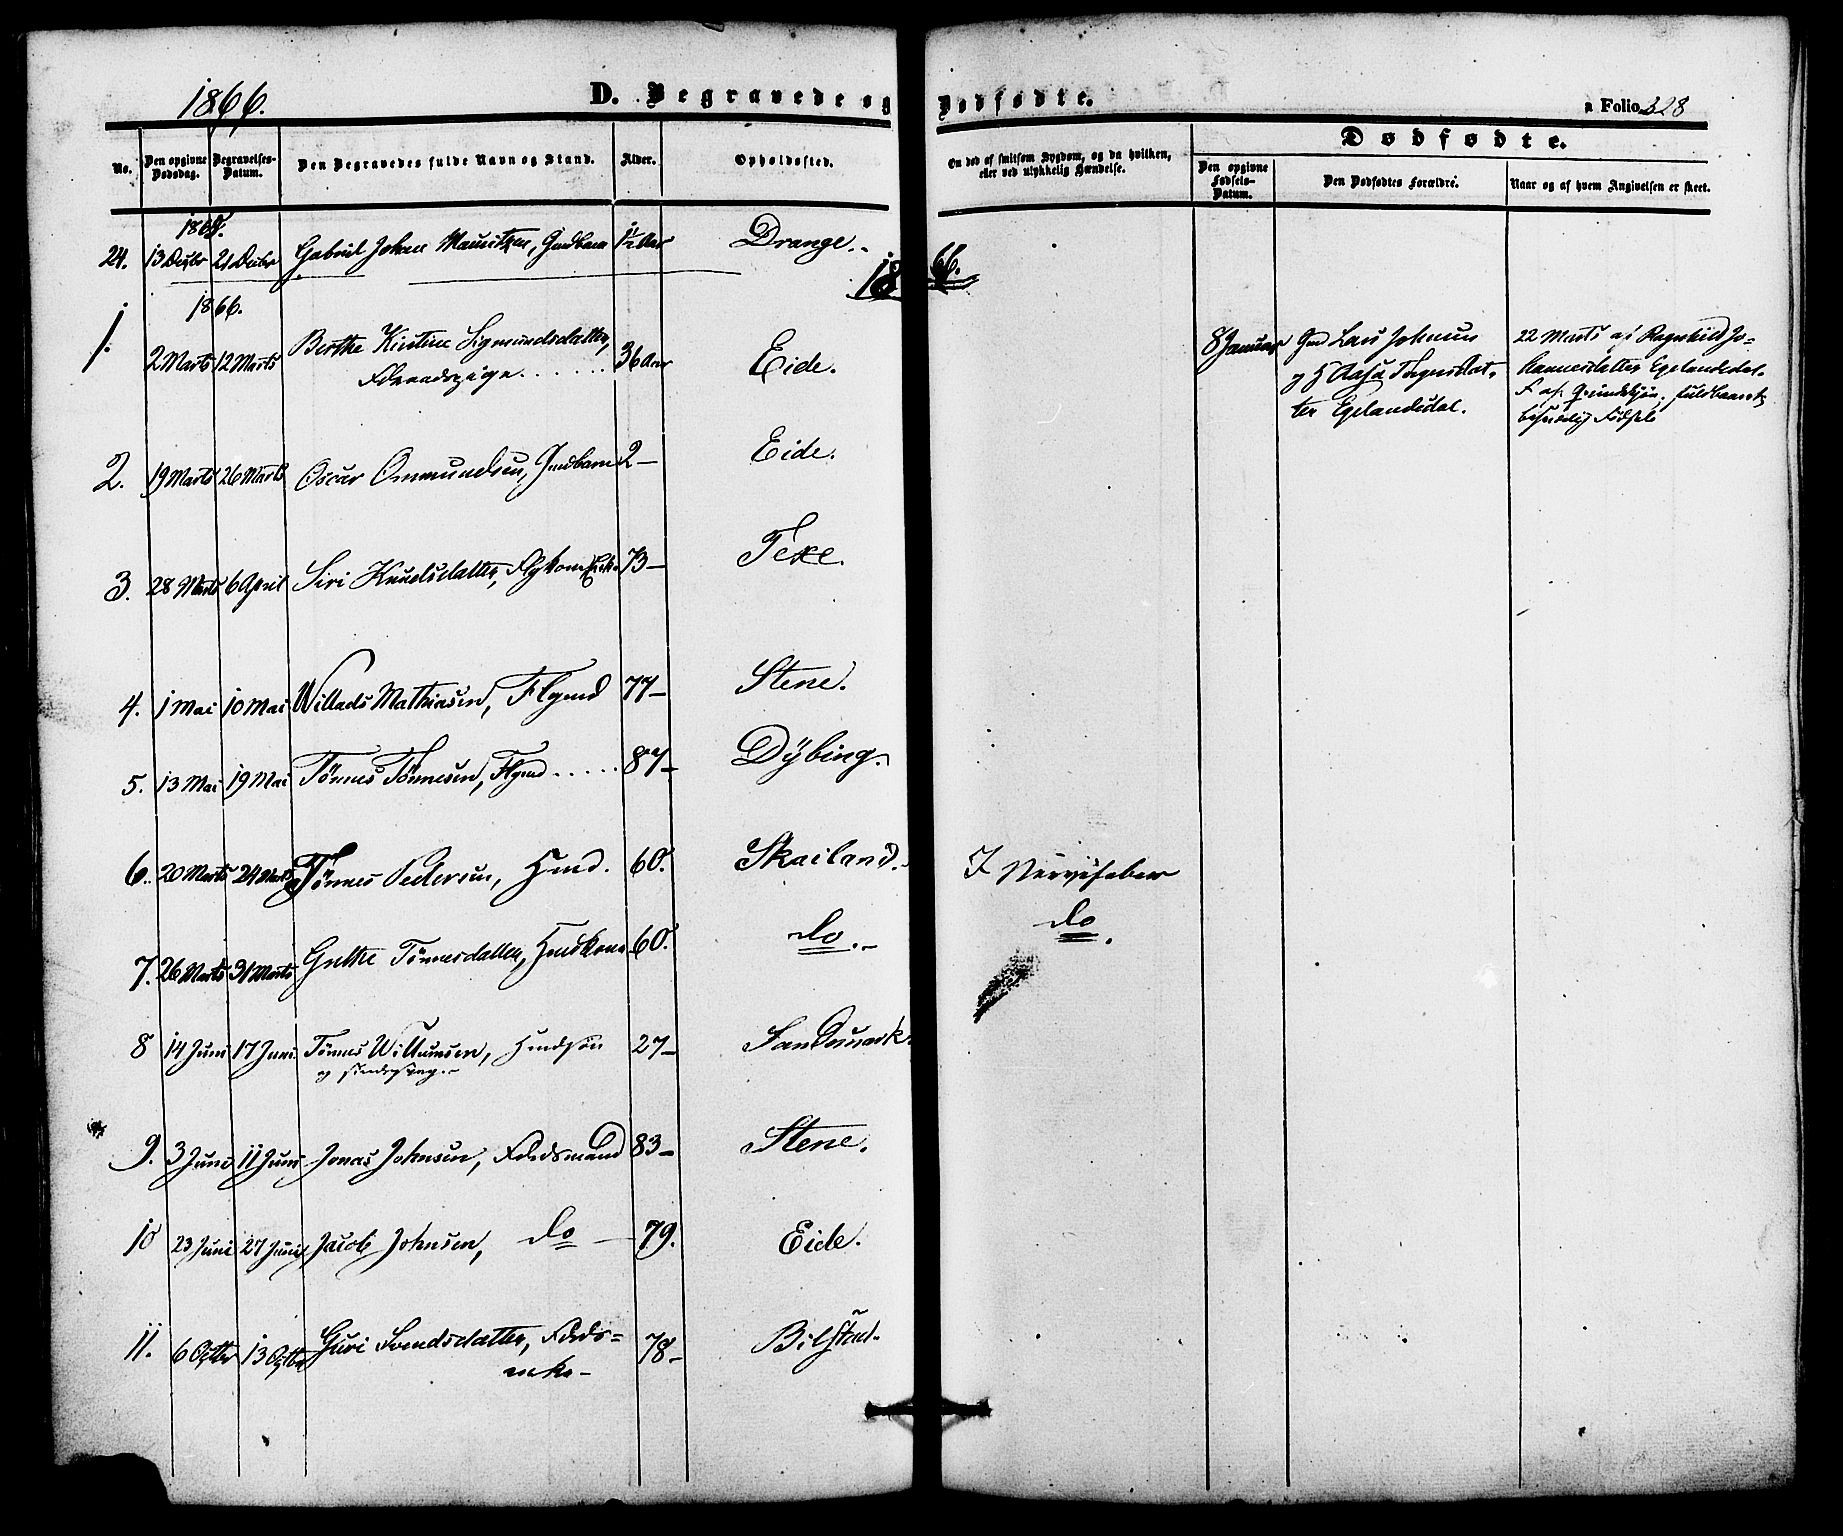 1866. D. Begravede og Dødfødte. a Folio 328
No. Den opgivne Dødsdag. Begravelses-Datum. Den Begravedes fulde Navn og Stand. Alder. Opholdssted. Om død af smitsom Sygdom, og da hvilken, eller ved ulykkelig Hændelse. Dødfødte.
Den opgivne Fødsels-Datum. Den Dødfødtes Forældre. Naar og af hvem Angivelsen er skeet.
1865.
24. 13 Decbr 21 Decbr Gabriel Johan Mauritzen, Gmdbarn 1½ Aar Drange.
1866.
1866.
1. 2 Marts 12 Marts Berthe Kirstine Sigmundsdatter, 36 Aar Eide.
8 Januar Gmd Lars Johnsen
og H Aasa Torgersdat-
ter Egelandsdal.
22 Marts af Ragnhild Jo-
hannesdatter Egelandsdal.
2. 19 Marts 26 Marts Oscar Ommundsen, Gmdbarn 2- Eide.
3. 28 Marts 6 April Siri Knudsdatter, 73- Texe.
4. 1 Mai 10 Mai Willads Mathiasen, Flgmd 77- Stene.
5. 13 Mai 19 Mai Tönnes Tönnesen, Flgmd..... 87- Dÿbing.
6. 20 Marts 24 Marts Tönnes Pedersen, Hmd. 60. Skailand. Nervefeber
7. 26 Marts 31 Marts Grethe Tönnesdatter, Hmdkone 60. do. do.
8 14 Juni 17 Juni Tönnes Willumsen, Hmdsön 27- Sandsmark.
og sindssvag.
9. 3 Juni 11 Juni Jonas Johnsen, Fdrdsmand 83- Stene.
10 23 Juni 27 Juni Jacob Johnsen, do 79. Eide.
11. 6 Octbr 13 Octbr Guri Svendsdatter, Fdrds= 78- Bilstad.
enke-